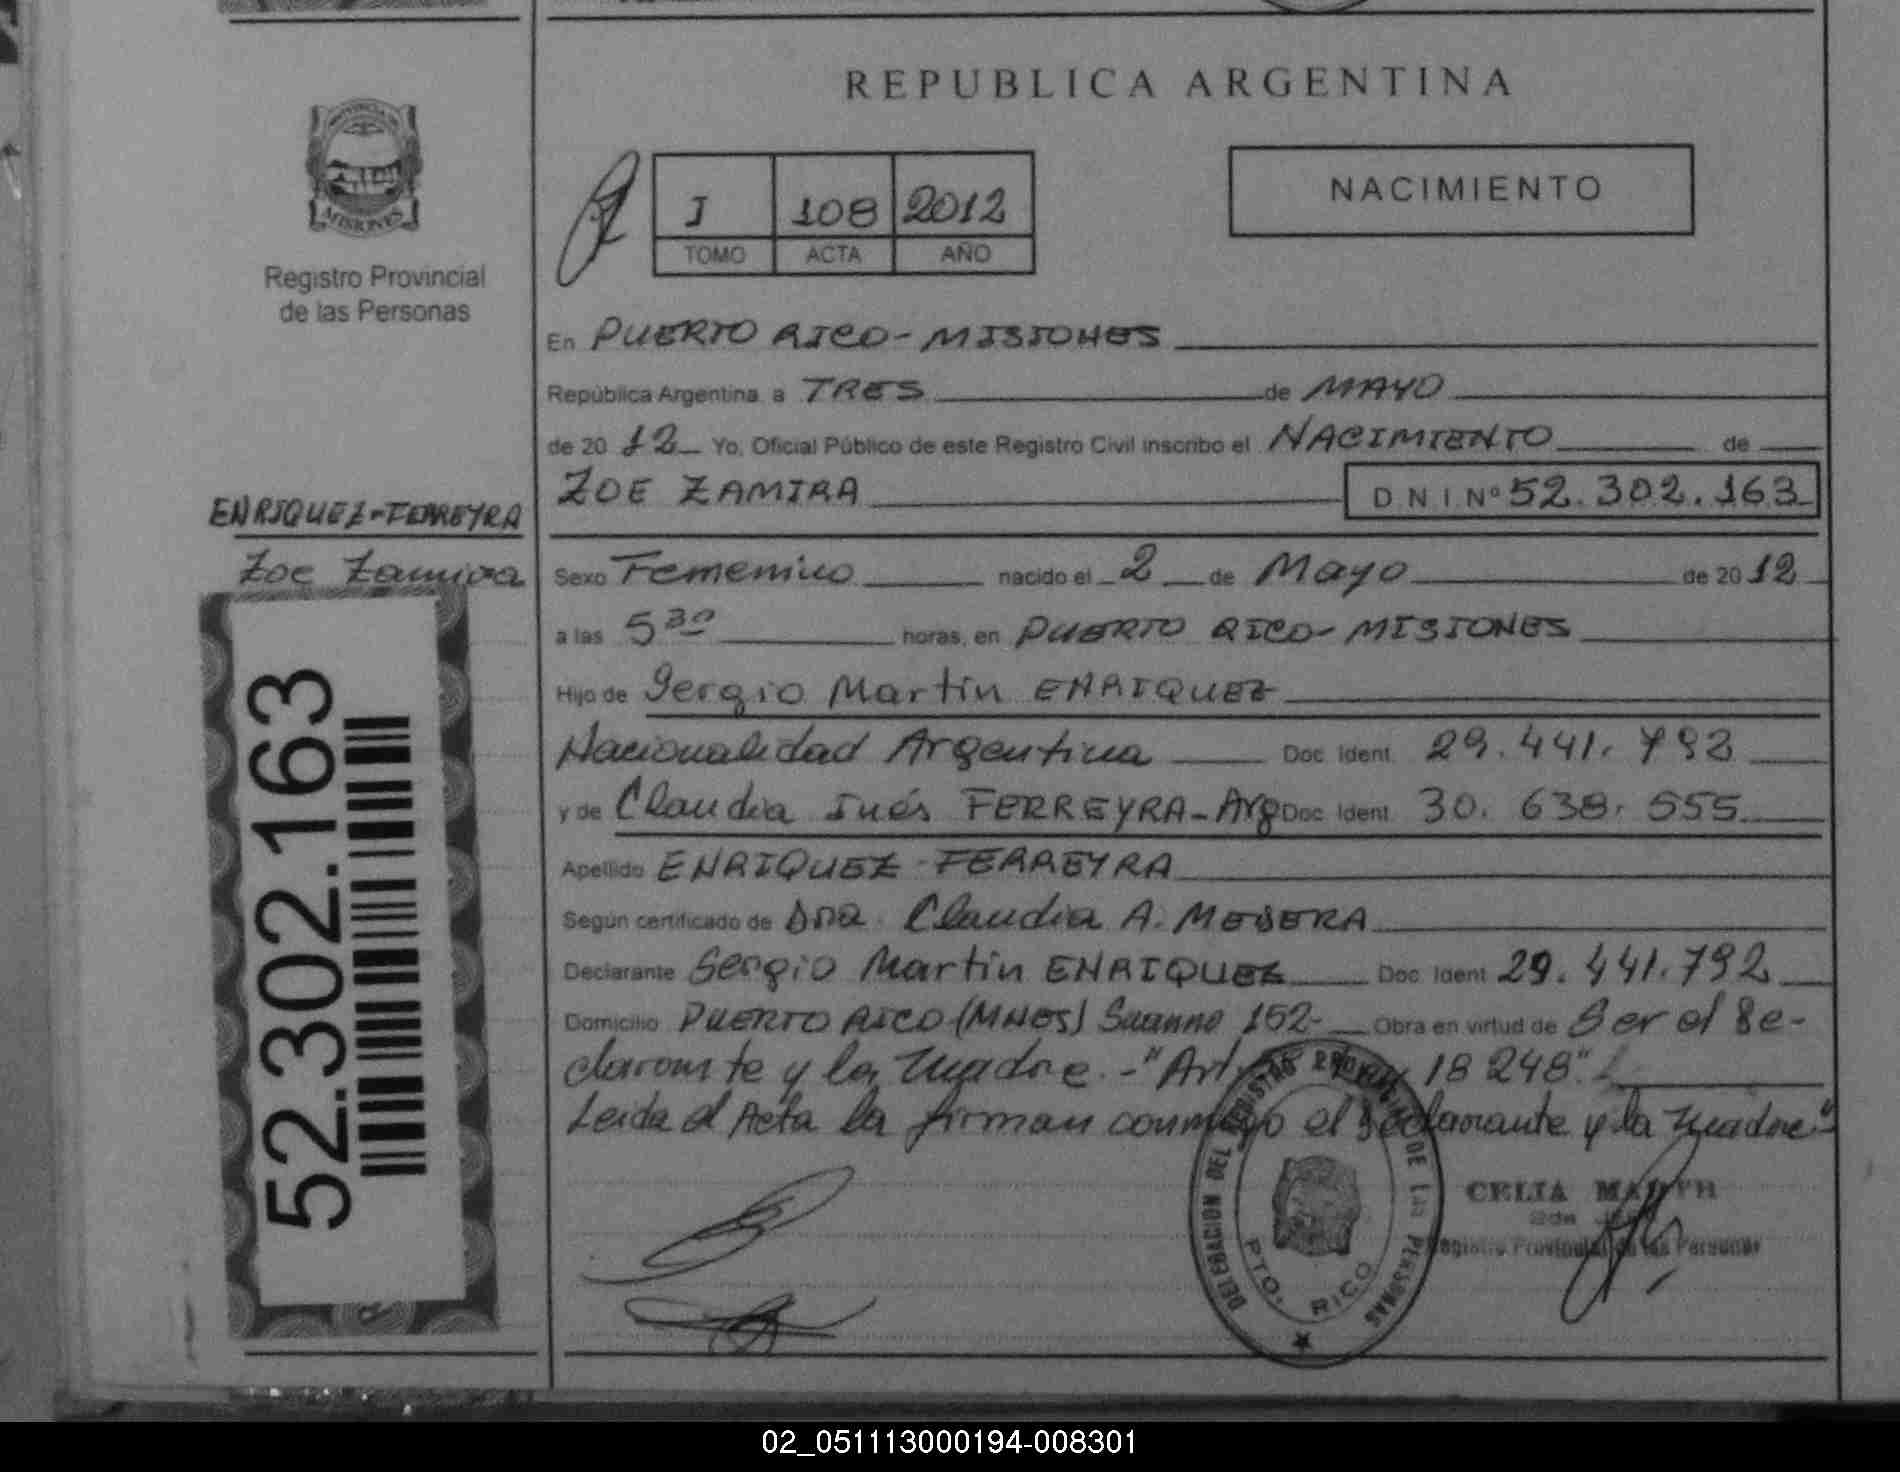 REPUBLICA ARGENTINA
PROVINCIA DE
MISIONES
Registro Provincial
de las Personas
I 108 2012
TOMO ACTA AÑO
NACIMIENTO
En PUERTO RICO - MISIONES
República Argentina, a TRES de MAYO
de 2012 Yo, Oficial Público de este Registro Civil inscribo el NACIMIENTO de
ZOE ZAMIRA DNI Nº 52.302.163
ENRIQUEZ-FERREYRA
Zoe Zamira
52.302.163
Sexo Femenino nacido el 2 de Mayo de 2012
a las 5 30 horas, en PUERTO RICO - MISIONES
Hijo de Sergio Martin ENRIQUEZ
Nacionalidad Argentina Doc. Ident. 29.441.792
y de Claudia Inés FERREYRA - Arg Doc. Ident. 30.638.555
Apellido ENRIQUEZ - FERREYRA
Según certificado de Dra. Claudia A.
Declarante Sergio Martin ENRIQUEZ Doc. Ident. 29.441.792
Domicilio PUERTO RICO (MNES) 152- Obra en virtud de Ser el De-
clarante y la Madre. - "Art. 18248".
Leida el Acta la firman conmigo el Declarante y la Madre"
DELEGACION DEL REGISTRO PROVINCIAL DE LAS PERSONAS
PTO. RICO
CELIA
Registro Provincial de las Personas
02_051113000194-008301